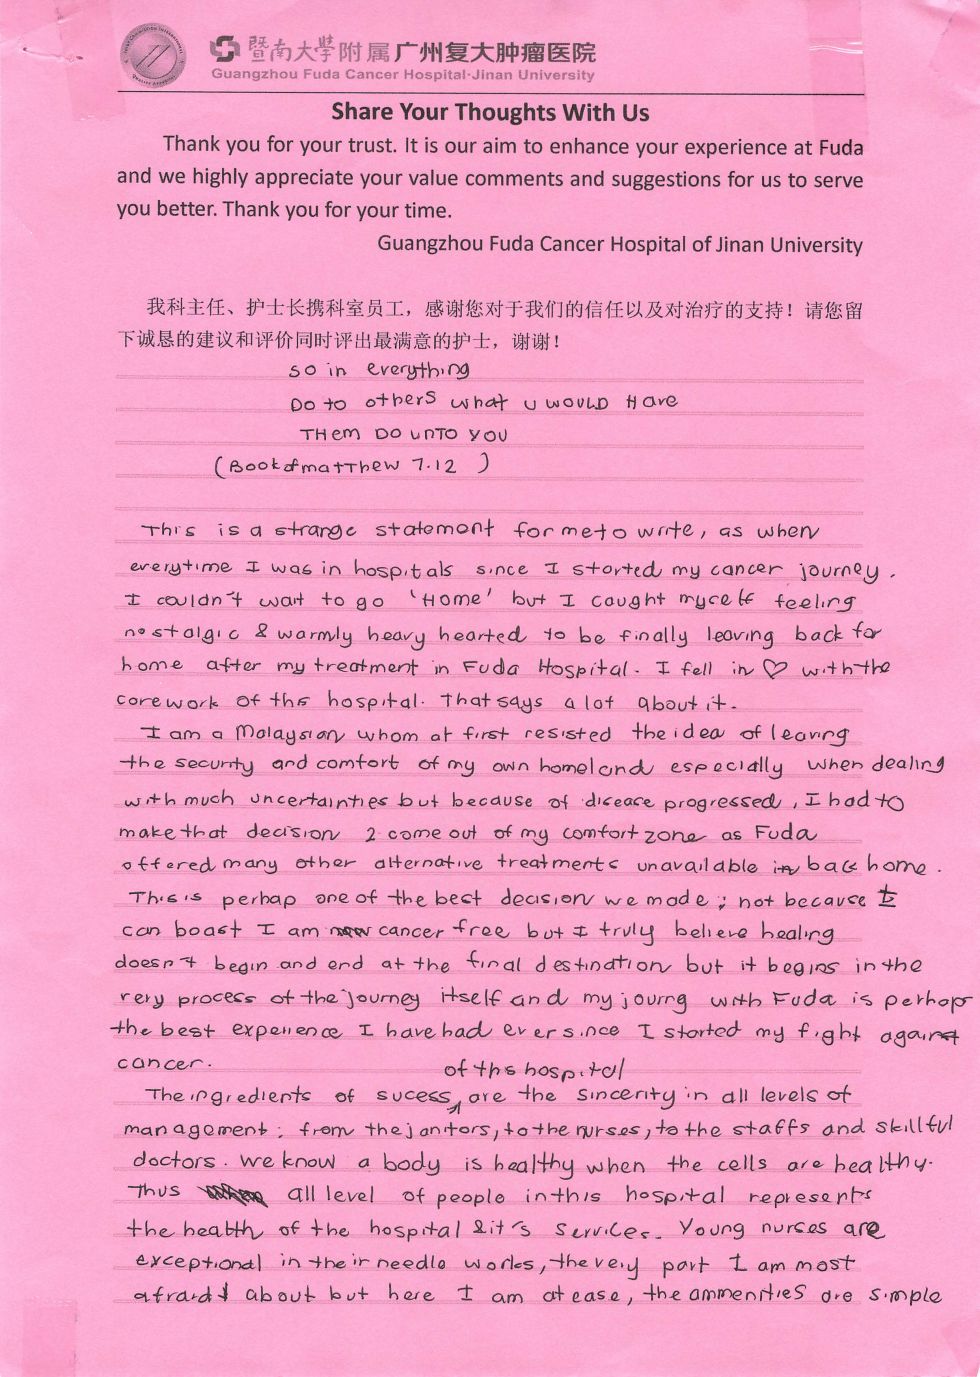 暨南大學附属广州复大肿瘤医院
Guangzhou Fuda Cancer Hospital·Jinan University
Share Your Thoughts With Us
Thank you for your trust. It is our aim to enhance your experience at Fuda
and we highly appreciate your value comments and suggestions for us to serve
you better. Thank you for your time.
Guangzhou Fuda Cancer Hospital of Jinan University
我科主任、护士长携科室员工，感谢您对于我们的信任以及对治疗的支持！请您留
下诚恳的建议和评价同时评出最满意的护士，谢谢！
so in everything
Do to others what u WOULD HAve
THEM DO UNTO YOU
(Book of matthew 7.12 )
This is a strange statement for me to write, as when
everytime I was in hospitals since I started my cancer journey.
I couldn't wait to go 'Home' but I caught myself feeling
nostalgic & warmly heavy hearted to be finally leaving back for
home after my treatment in Fuda Hospital. I fell in ♡ with the
corework of this hospital. That says a lot about it.
I am a Malaysian whom at first resisted the idea of leaving
the security and comfort of my own homeland especially when dealing
with much uncertainties but because of disease progressed, I had to
make that decision 2 come out of my comfort zone as Fuda
offered many other alternative treatments unavailable in back home.
This is perhap one of the best decision we made; not because I
can boast I am cancer free but I truly believe healing
doesn't begin and end at the final destination but it begins in the
very process of the journey itself and my journg with Fuda is perhap
the best experience I have had ever since I started my fight against
cancer.
of this hospital
The ingredients of sucess, are the sincerity in all levels of
management; from the janitors, to the nurses, to the staffs and skillful
doctors. We know a body is healthy when the cells are healthy.
Thus all level of people in this hospital represents
the health of the hospital & it's services. Young nurses are
exceptional in their needle works, the very part I am most
afraid about but here I am at ease, the ammenities are simple